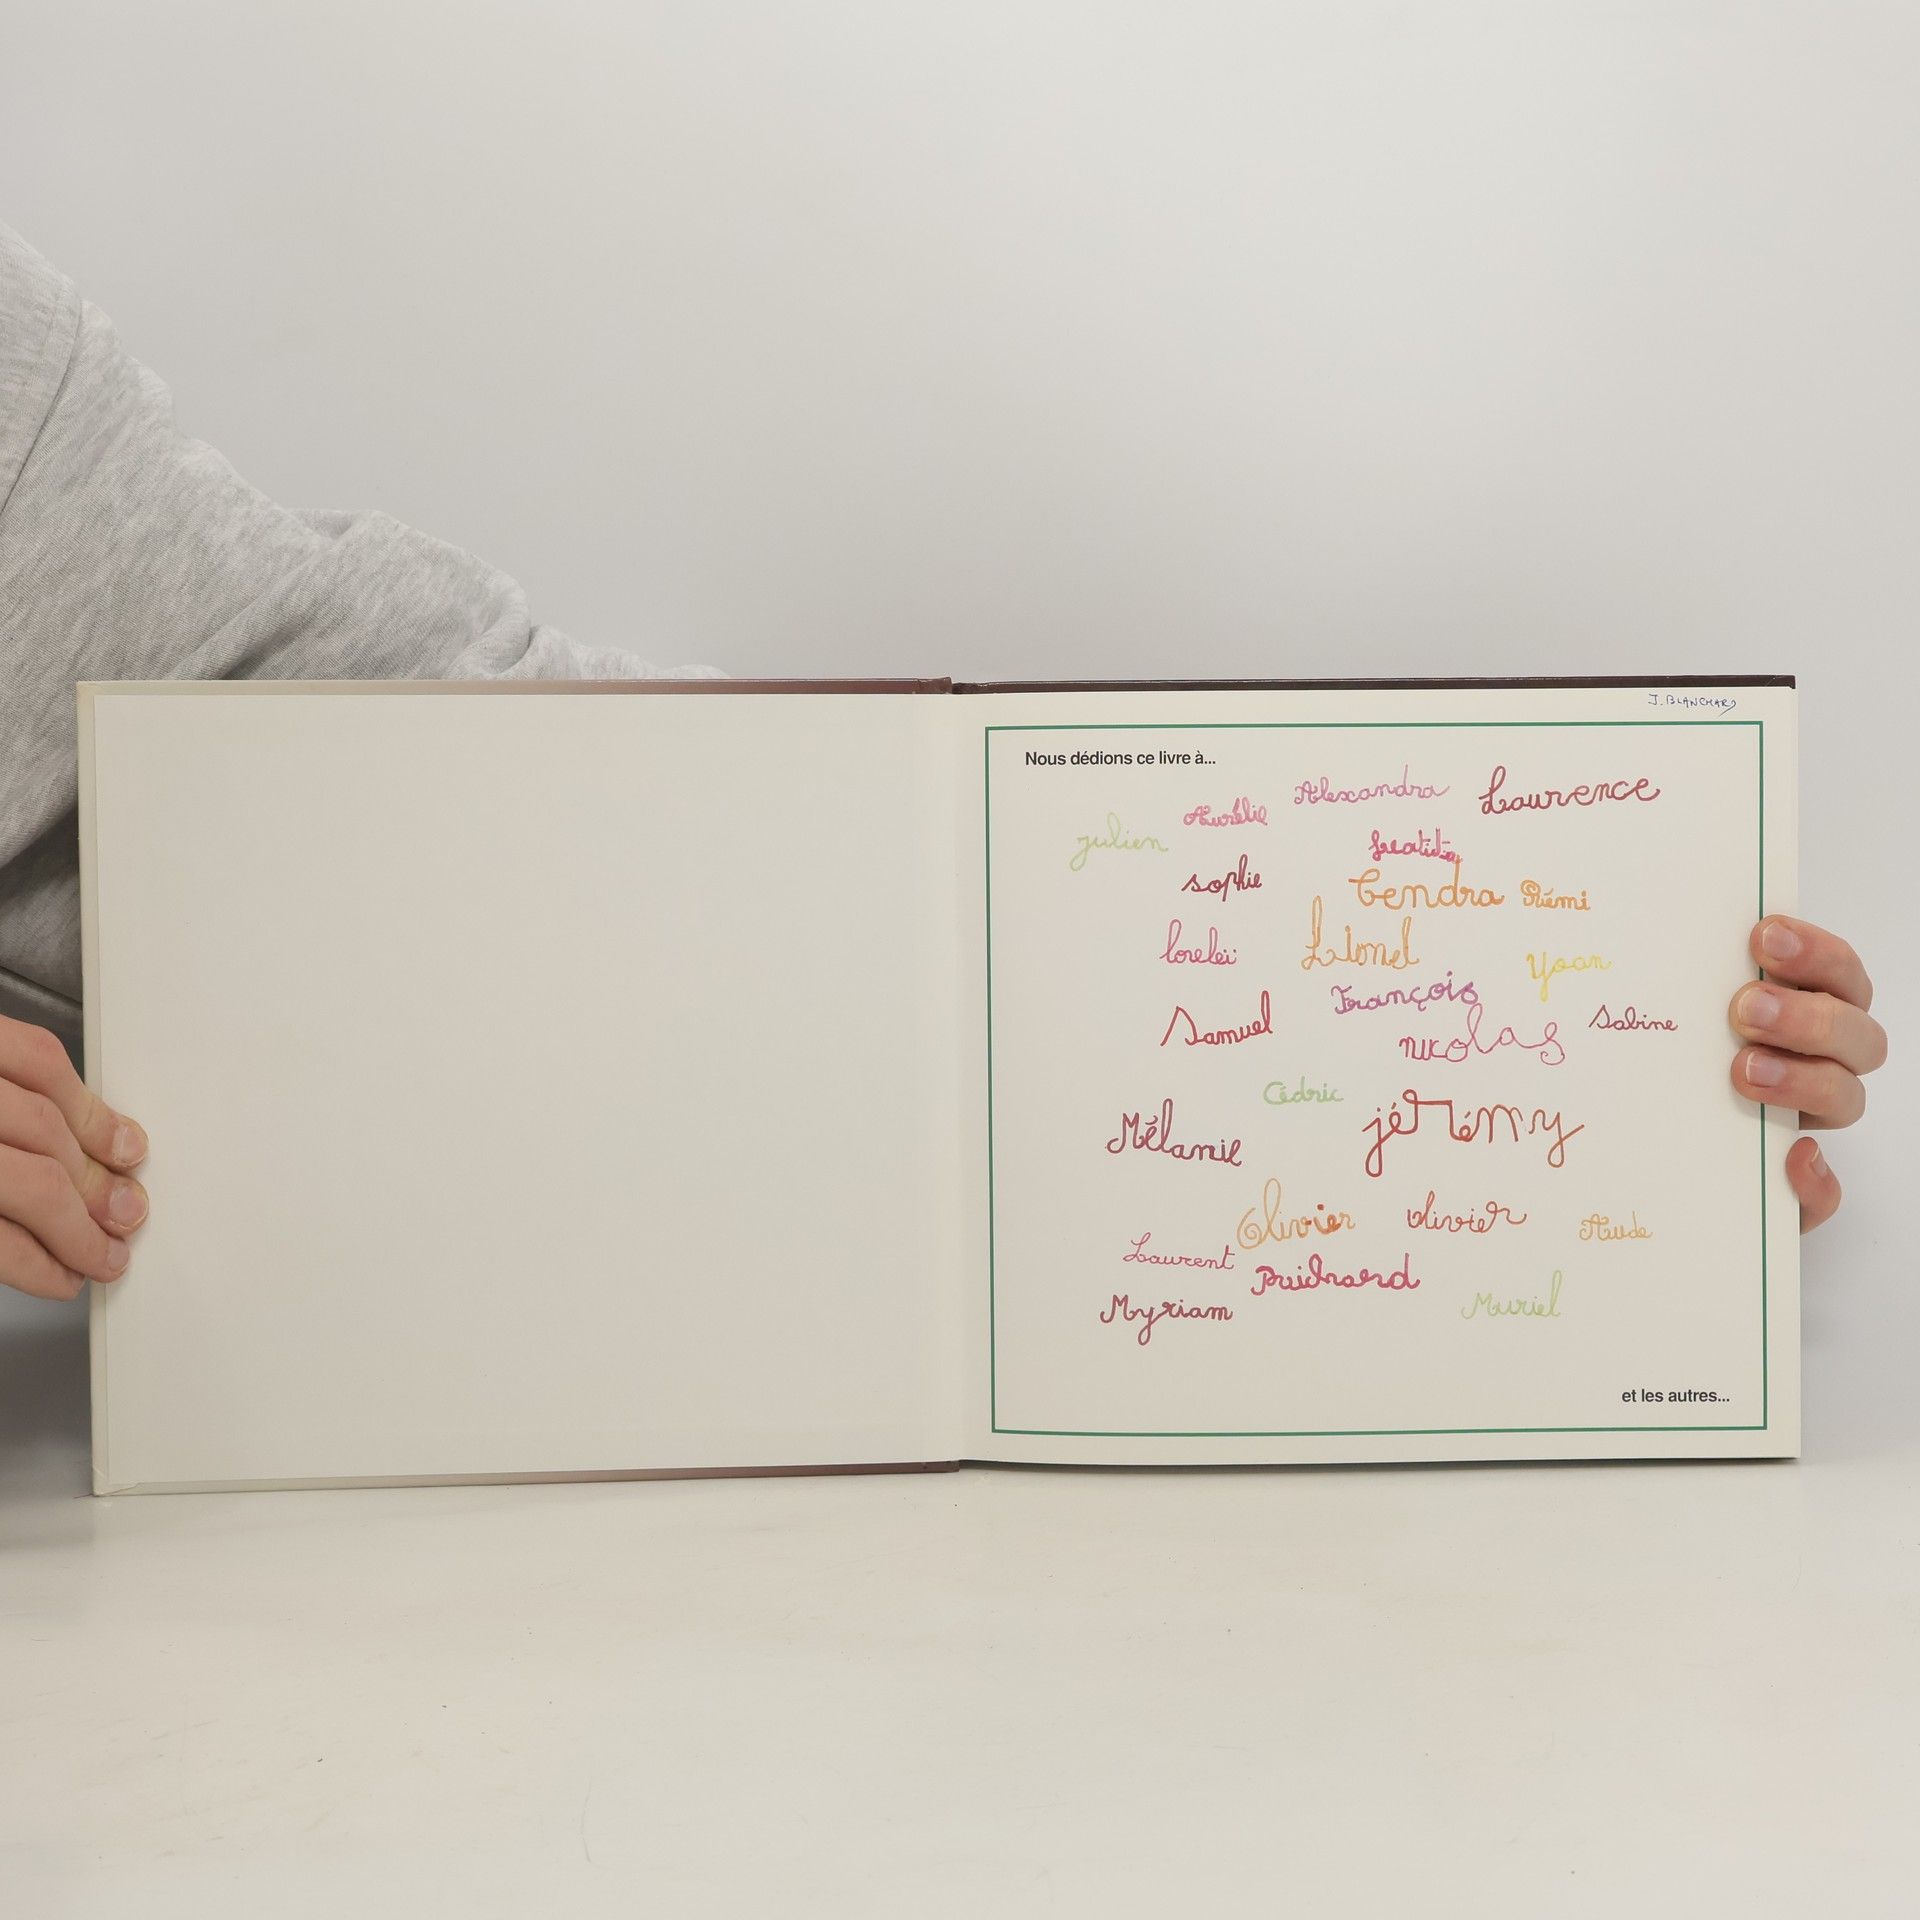 J. BLANCHARD
Nous dédions ce livre à...
Alexandra
Laurence
Aurélie
julien
sophie
Cendra
Rémi
loreleï
Lionel
Yoan
François
Samuel
nicolas
Sabine
Cédric
Mélanie
jérémy
Olivier
olivier
Aude
Laurent
Myriam
Muriel
et les autres...